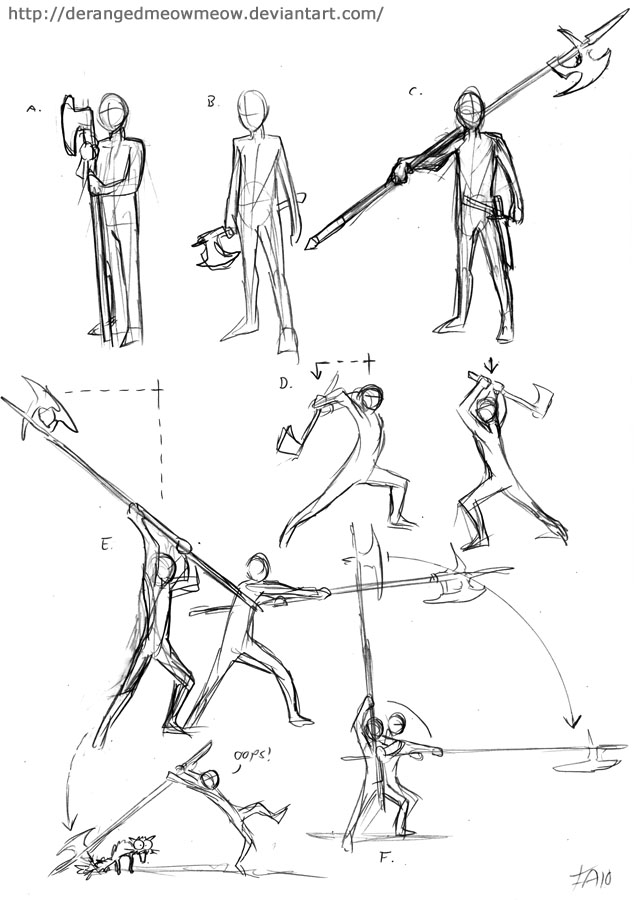 http://derangedmeowmeow.deviantart.com/
A.
B.
C.
D.
E.
oops!
F.